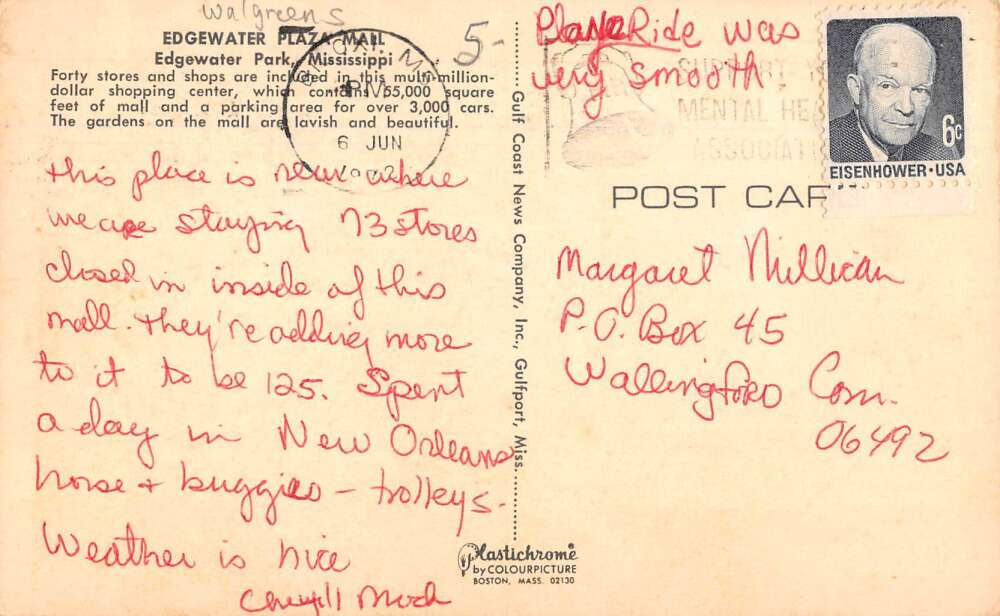 Walgreens
EDGEWATER PLAZA MALL
Edgewater Park, Mississippi
Forty stores and shops are included in this multi-million-
dollar shopping center, which contains 55,000 square
feet of mall and a parking area for over 3,000 cars.
The gardens on the mall are lavish and beautiful.
5-
PM
6 JUN
this place is near where
we are staying 73 stores
closed in inside of this
mall. they're adding more
to it to be 125. Spent
a day in New Orleans
horse + buggies - trolleys.
Weather is nice
Gulf Coast News Company, Inc., Gulfport, Miss.
Plastichrome
by COLOURPICTURE
BOSTON, MASS. 02130
Plane Ride was
very smooth
SUPPORT
MENTAL HEA
ASSOCIATI
6c
EISENHOWER·USA
POST CAR
Margaret Millican
P.O. Box 45
Wallingford Conn.
06492